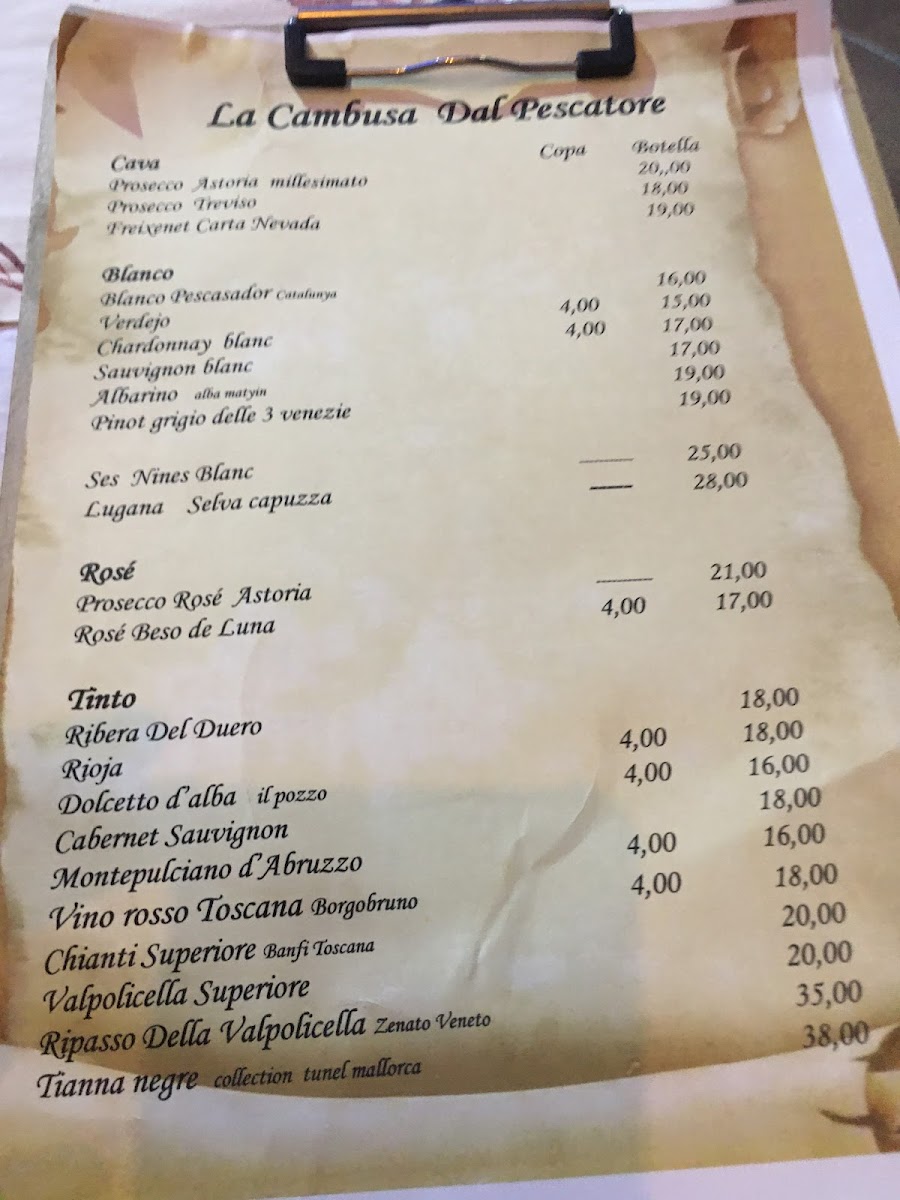 La Cambusa Dal Pescatore
Copa Botella
Cava
Prosecco Astoria millesimato 20,,00
Prosecco Treviso 18,00
Freixenet Carta Nevada 19,00
Blanco
Blanco Pescasador Catalunya 16,00
Verdejo 4,00 15,00
Chardonnay blanc 4,00 17,00
Sauvignon blanc 17,00
Albarino alba matyin 19,00
Pinot grigio delle 3 venezie 19,00
Ses Nines Blanc ____ 25,00
Lugana Selva capuzza ____ 28,00
Rosé
Prosecco Rosé Astoria ____ 21,00
Rosé Beso de Luna 4,00 17,00
Tinto
Ribera Del Duero 18,00
Rioja 4,00 18,00
Dolcetto d'alba il pozzo 4,00 16,00
Cabernet Sauvignon 18,00
Montepulciano d'Abruzzo 4,00 16,00
Vino rosso Toscana Borgobruno 4,00 18,00
Chianti Superiore Banfi Toscana 20,00
Valpolicella Superiore 20,00
Ripasso Della Valpolicella Zenato Veneto 35,00
Tianna negre collection tunel mallorca 38,00